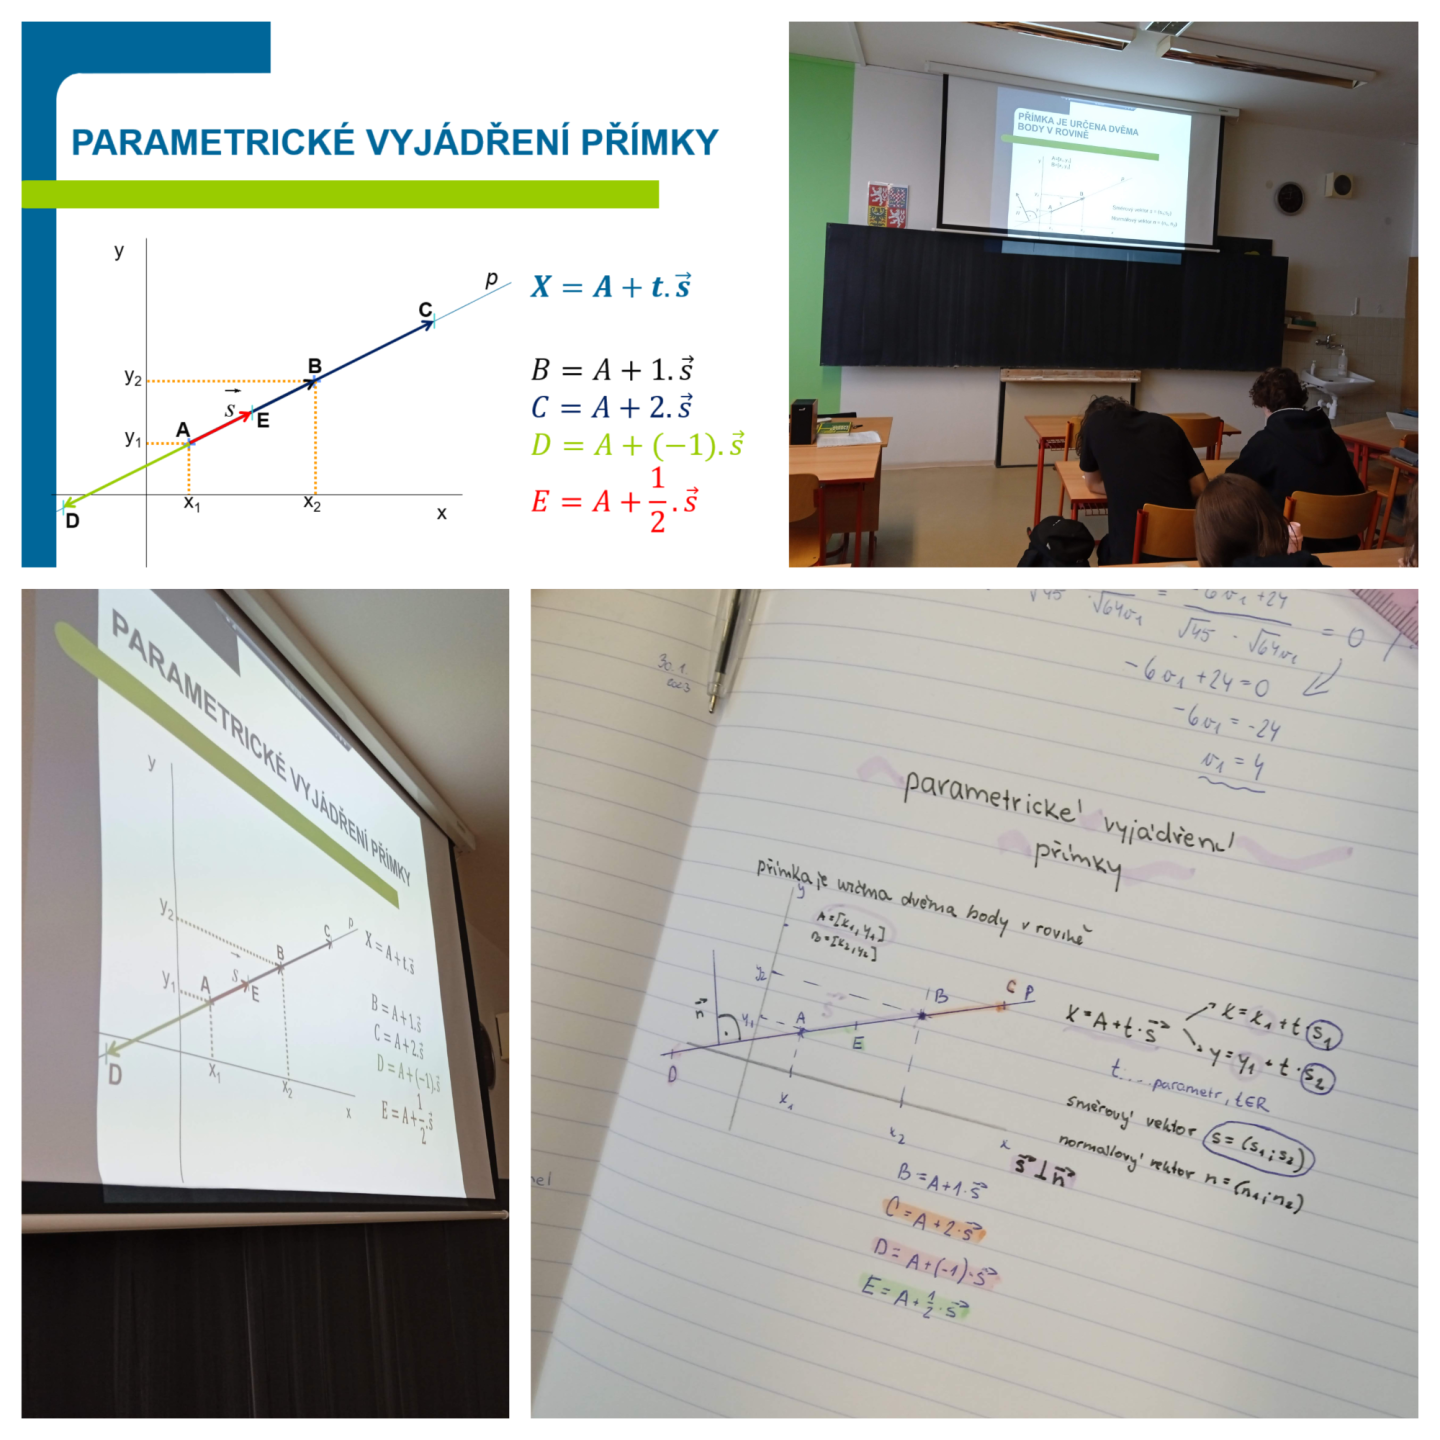 PARAMETRICKÉ VYJÁDŘENÍ PŘÍMKY
y
p
C
B
y2
s
E
A
y1
x1
x2
x
D
X = A + t.s⃗
B = A + 1.s⃗
C = A + 2.s⃗
D = A + (−1).s⃗
E = A + 1/2 .s⃗
PŘÍMKA JE URČENA DVĚMA
BODY V ROVINĚ
PARAMETRICKÉ VYJÁDŘENÍ PŘÍMKY
y
y2
y1
A
s
E
B
C
p
D
x1
x2
x
X = A + t.s⃗
B = A + 1.s⃗
C = A + 2.s⃗
D = A + (−1).s⃗
E = A + 1/2 .s⃗
30.1.
2023
√45 · √64v1 = -6v1 + 24 / √45 · √64v1 = 0
-6v1 + 24 = 0
-6v1 = -24
v1 = 4
parametrické vyjádření
přímky
přímka je určena dvěma body v rovině
y
A = [x1, y1]
B = [x2, y2]
y2
n⃗
y1
A
s⃗
E
B
C
P
D
x1
x2
x
X = A + t · s⃗
x = x1 + t · s1
y = y1 + t · s2
t .... parametr, t∈R
směrový vektor s = (s1; s2)
normálový vektor n = (n1; n2)
s⃗ ⊥ n⃗
B = A + 1 · s⃗
C = A + 2 · s⃗
D = A + (-1) · s⃗
E = A + 1/2 · s⃗